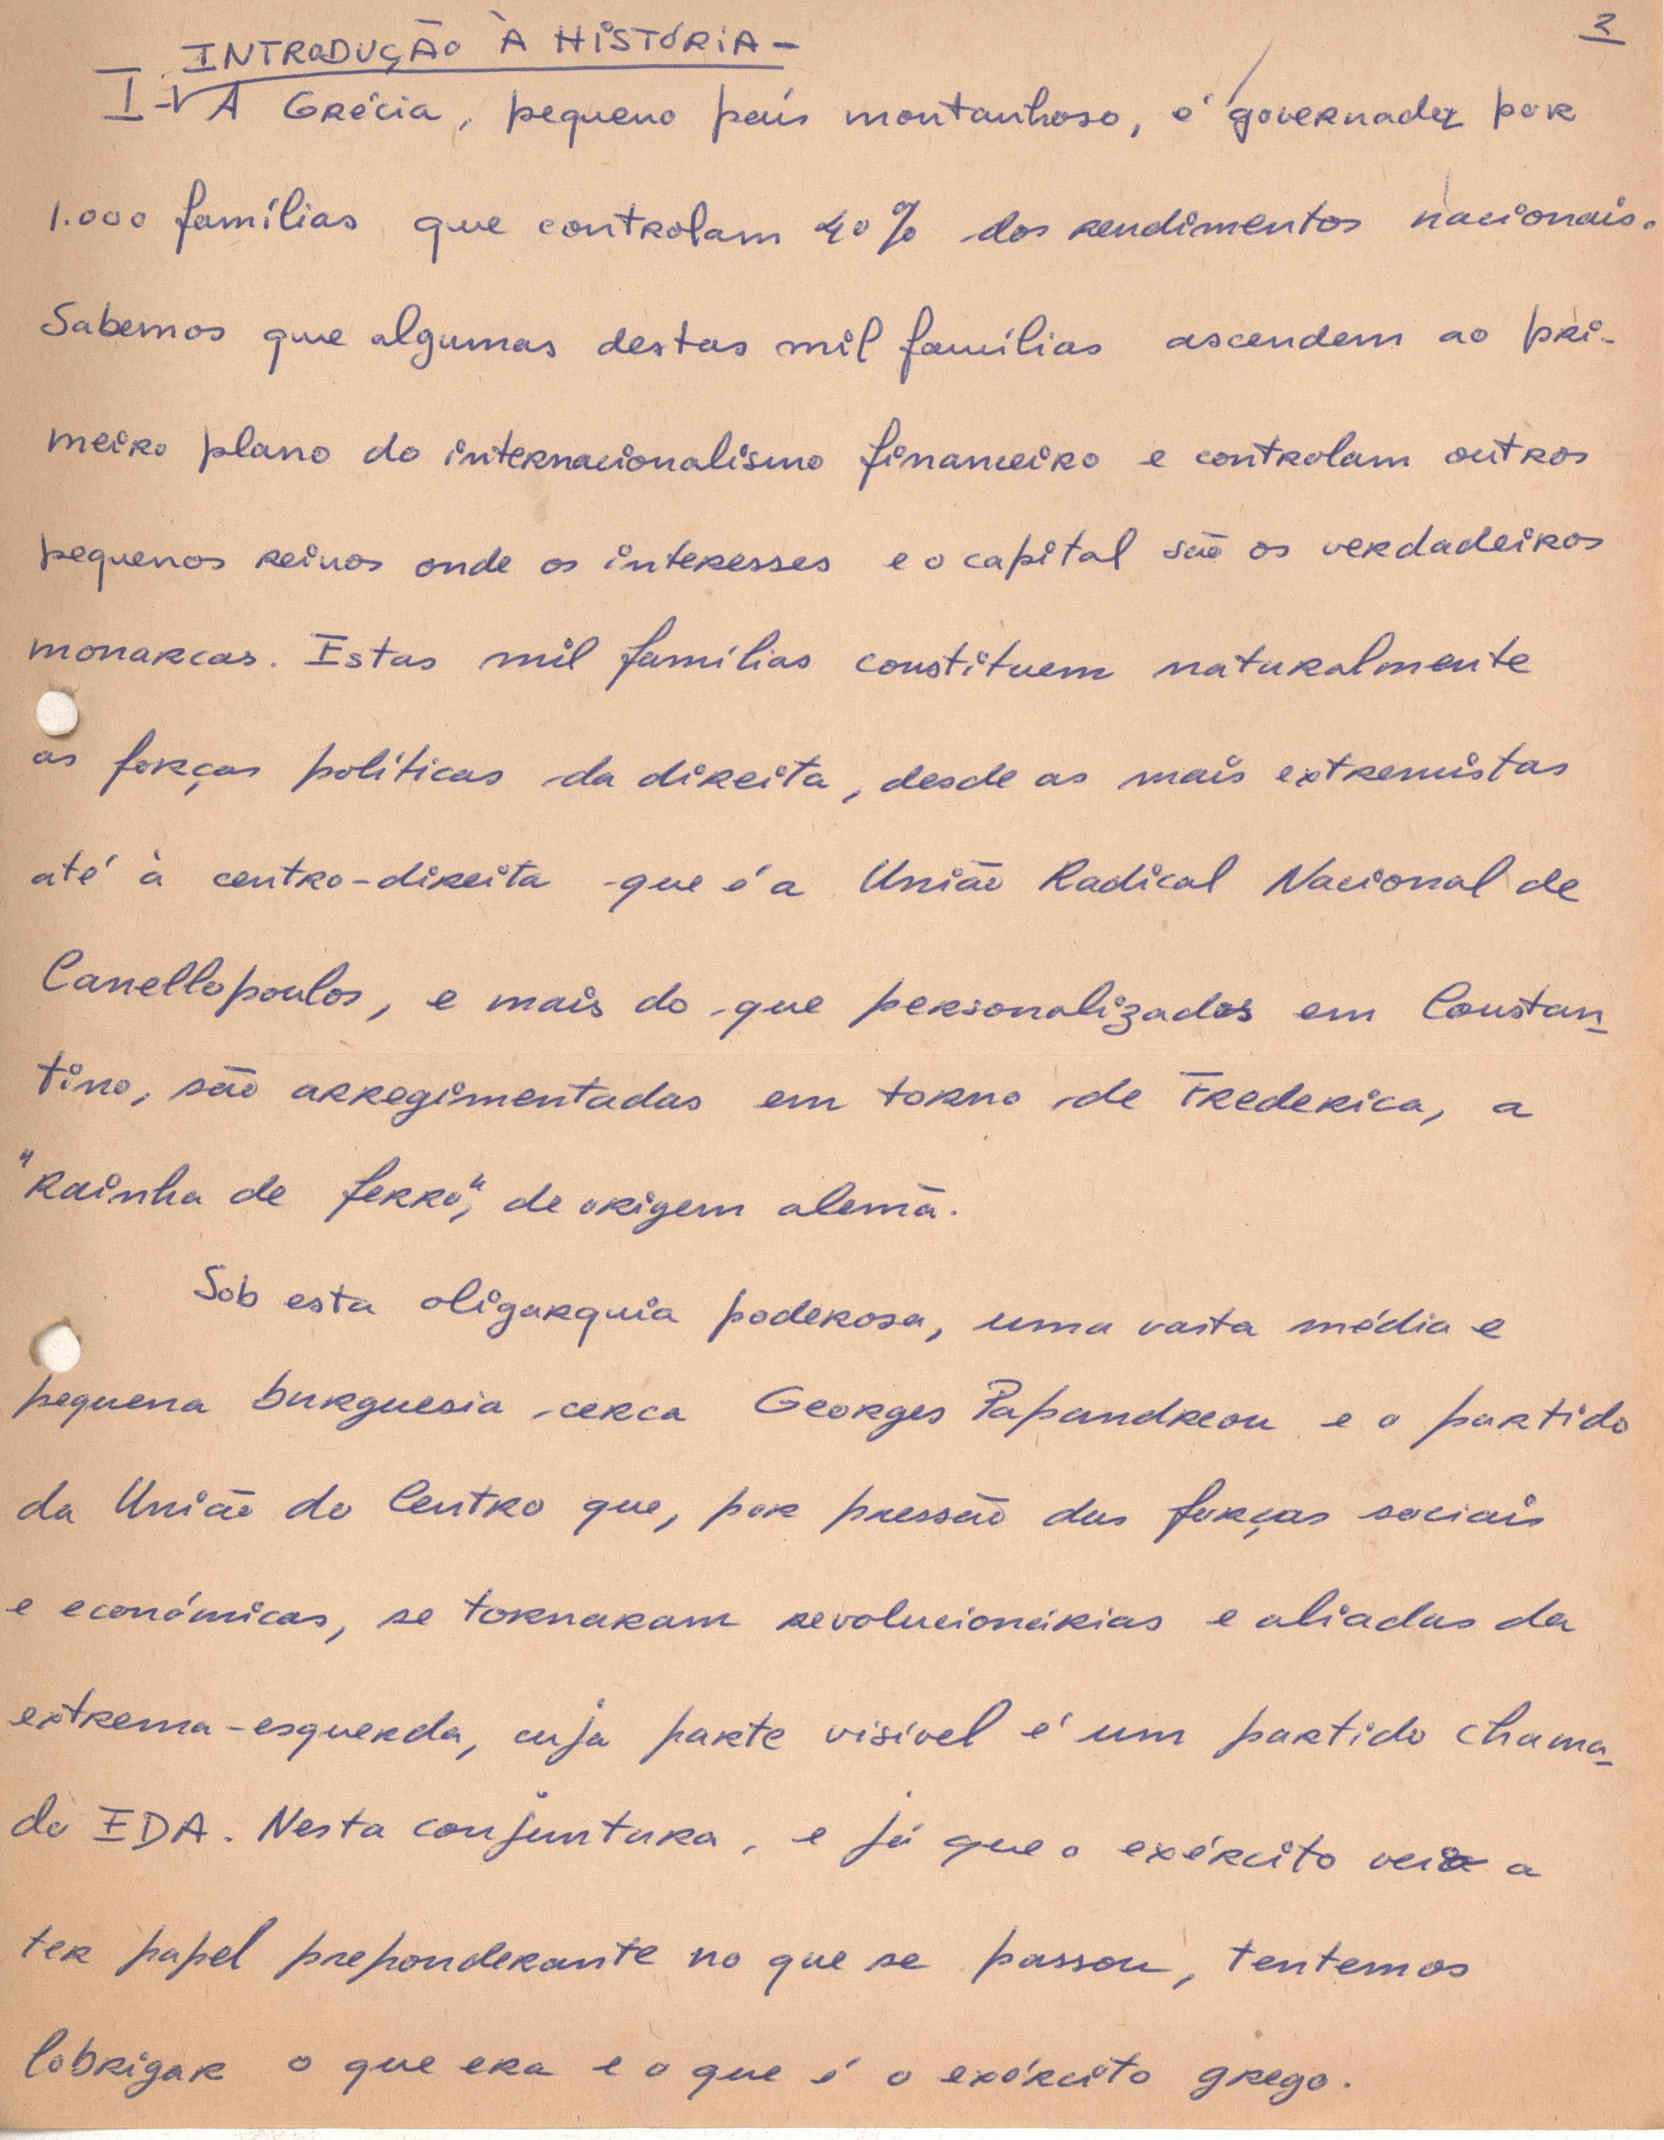 2
INTRODUÇÃO À HISTÓRIA -
I - A Grécia, pequeno país montanhoso, é governada por
1.000 famílias que controlam 40% dos rendimentos nacionais.
Sabemos que algumas destas mil famílias ascendem ao pri-
meiro plano do internacionalismo financeiro e controlam outros
pequenos reinos onde os interesses e o capital são os verdadeiros
monarcas. Estas mil famílias constituem naturalmente
as forças políticas da direita, desde as mais extremistas
até à centro-direita que é a União Radical Nacional de
Canellopoulos, e mais do que personalizados em Constan-
tino, são arregimentadas em torno de Frederica, a
"Rainha de ferro", de origem alemã.
Sob esta oligarquia poderosa, uma vasta média e
pequena burguesia cerca Georges Papandreou e o partido
da União do Centro que, por pressão das forças sociais
e económicas, se tornaram revolucionárias e aliadas da
extrema-esquerda, cuja parte visível é um partido chama-
do EDA. Nesta conjuntura, e já que o exército veio a
ter papel preponderante no que se passou, tentemos
lobrigar o que era e o que é o exército grego.